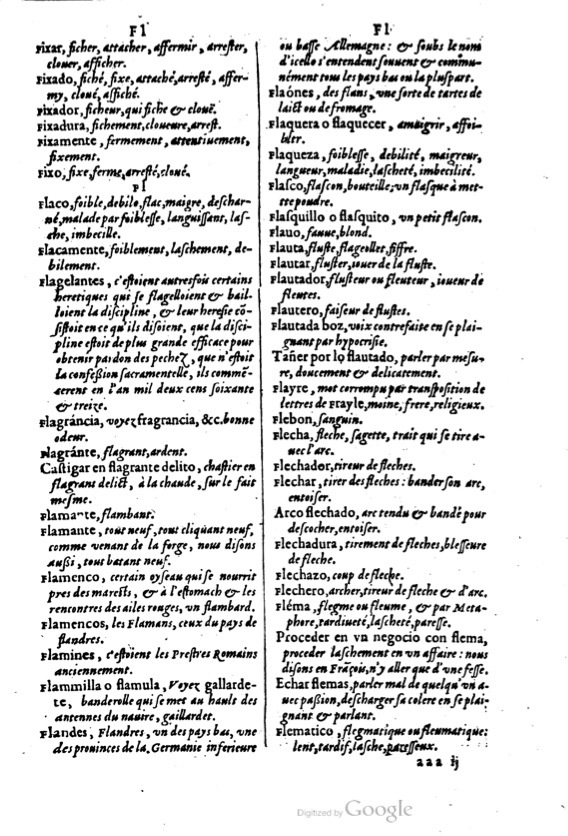 FI
Fixar, ficher, attacher, affermir, arrester,
clouer, afficher.
Fixado, fiché, fixe, attaché, arresté, affer-
my, cloué, affiché.
Fixador, ficheur, qui fiche & cloüe.
Fixadura, fichement, cloueure, arrest.
Fixamente, fermement, attentiuement,
fixement.
Fixo, fixe, ferme, arresté, cloué.
Fl
Flaco, foible, debile, flac, maigre, deschar-
né, malade par foiblesse, languissant, las-
che, imbecille.
Flacamente, foiblement, laschement, de-
bilement.
Flagelantes, c'estoient autresfois certains
heretiques qui se flagelloient & bail-
loient la discipline, & leur heresie cõ-
sistoit en ce qu'ils disoient, que la disci-
pline estoit de plus grande efficace pour
obtenir pardon des pechez, que n'estoit
la confession sacramentelle, ils commẽ-
cerent en l'an mil deux cens soixante
& treize.
Flagráncia, voyez fragrancia, &c. bonne
odeur.
Flagránte, flagrant, ardent.
Castigar en flagrante delito, chastier en
flagrant delict, à la chaude, sur le fait
mesme.
Flamante, flambant.
Flamante, tout neuf, tout cliquant neuf,
comme venant de la forge, nous disons
aussi, tout batant neuf.
Flamenco, certain oyseau qui se nourrit
pres des marests, & à l'estomach & les
rencontres des ailes rouges, un flambard.
Flamencos, les Flamans, ceux du pays de
flandres.
Flamines, c'estoient les Prestres Romains
anciennement.
Flammilla o flamula, Voyez gallarde-
te, banderolle qui se met au hauls des
antennes du nauire, gaillardet.
Flandes, Flandres, vn des pays bas, vne
des prouinces de la Germanie inferieure
Fl
ou basse Allemagne: & soubs le nom
d'icelle s'entendent souuent & commu-
nément tous les pays bas ou la pluspart.
Flaónes, des flans, vne sorte de tartes de
laict ou de fromage.
Flaquera o flaquecer, amaigrir, affoi-
blir.
Flaqueza, foiblesse, debilité, maigreur,
langueur, maladie, lascheté, imbecilité.
Flasco, flascon, bouteille, vn flasque à met-
tre poudre.
Flasquillo o flasquito, vn petit flascon.
Flauo, fauue, blond.
Flauta, fluste, flageollet, fiffre.
Flautar, fluster, iouer de la fluste.
Flautador, flusteur ou fleuteur, ioueur de
fleutes.
Flautero, faiseur de flustes.
Flautada boz, voix contrefaite en se plai-
gnant par hypocrisie.
Tañer por lo flautado, parler par mesu-
re, doucement & delicatement.
Flayre, mot corrompu par transposition de
lettres de Frayle, moine, frere, religieux.
Flebon, sanguin.
Flecha, fleche, sagette, trait qui se tire a-
uec l'arc.
Flechador, tireur de fleches.
Flechar, tirer des fleches: bander son arc,
entoiser.
Arco flechado, arc tendu & bandé pour
descocher, entoiser.
Flechadura, tirement de fleches, blesseure
de fleche.
Flechazo, coup de fleche.
Flechero, archer, tireur de fleche & d'arc.
Fléma, flegme ou fleume, & par Meta-
phore, tardiueté, lascheté, paresse.
Proceder en vn negocio con flema,
proceder laschement en vn affaire: nous
disons en Frãçois, n'y aller que d'vne fesse.
Echar flemas, parler mal de quelqu'vn a-
uec passion, descharger sa colere en se plai-
gnant & parlant.
Flematico, flegmatique ou fleumatique:
lent, tardif, lasche, paresseux.
aaa ij
Digitized by Google